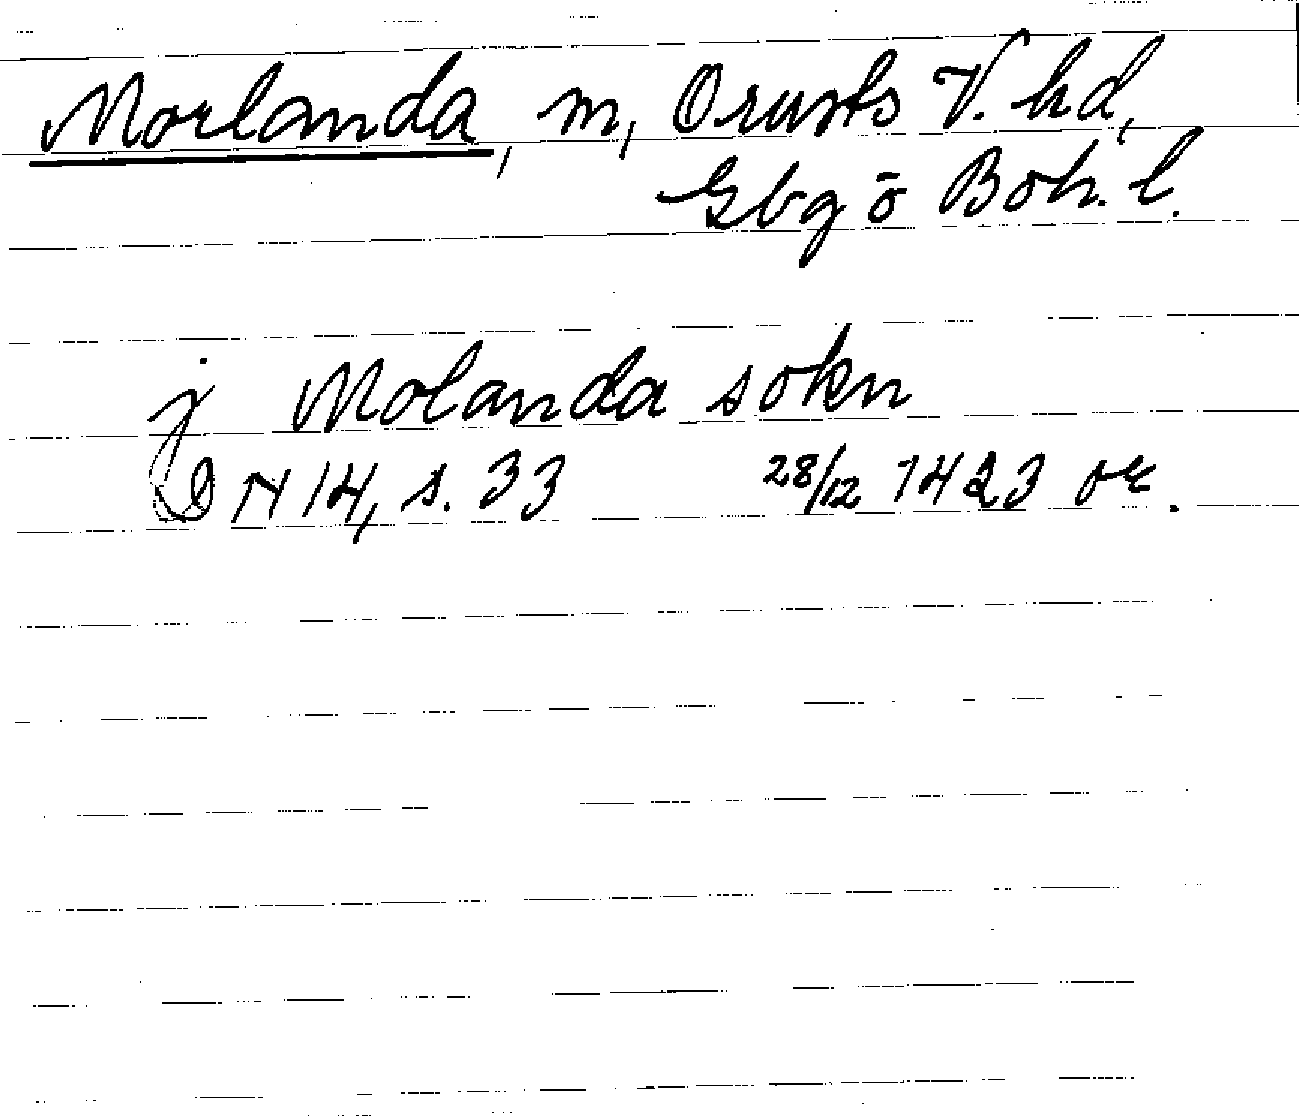 Morlanda, sn, Orusts V. hd,
Gbg o Boh. l.
j Molanda sokn
DN 14, s. 33 28/12 1423 or.